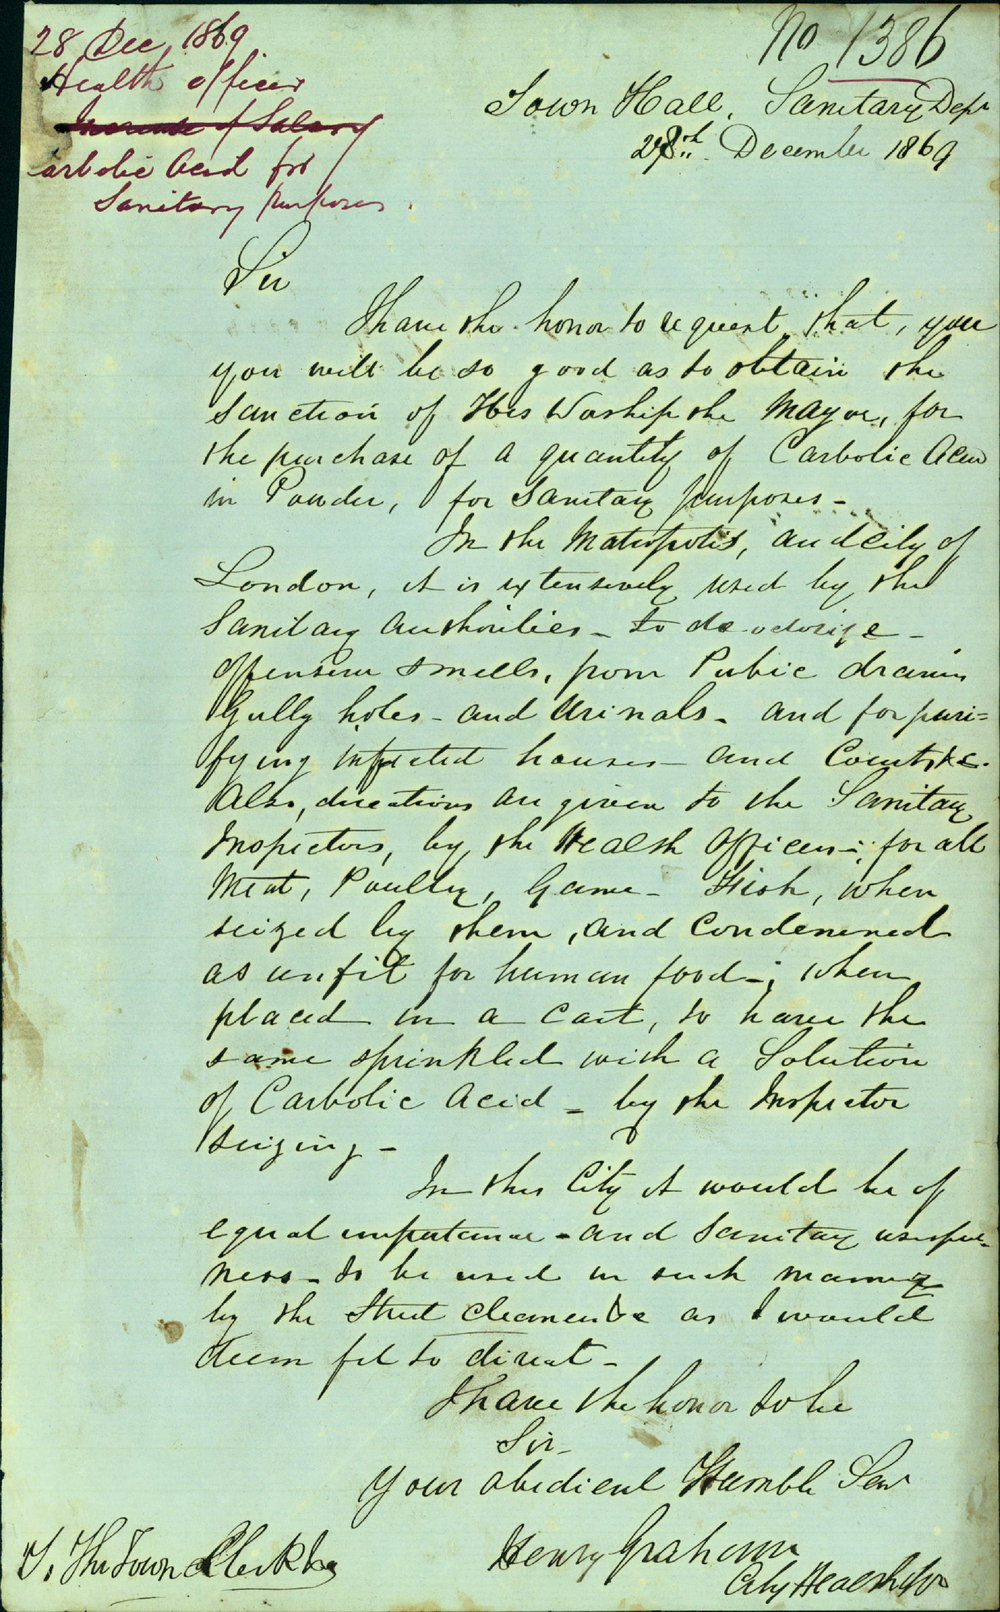 28 Dec 1869
Health officer
Increase of Salary
Carbolic Acid for
Sanitary purposes.
No 1386
Town Hall, Sanitary Dept
28th December 1869
Sir
I have the honor to request that, you
you will be so good as to obtain the
sanction of His Worship the Mayor, for
the purchase of a quantity of Carbolic Acid
in Powder, for Sanitary purposes -
In the Metropolis, and City of
London, it is extensively used by the
Sanitary Authorities - to de-odorize -
offensive smells, from Public drains
Gully holes - and Urinals - and for puri=
fying infected houses - and Courts &c.
Also, directions are given to the Sanitary
Inspectors, by the Health Officers -; for all
Meat, Poultry, Game - Fish, when
seized by them, and Condemned
as unfit for human food -; when
placed in a Cart, to have the
same sprinkled with a Solution
of Carbolic Acid - by the Inspector
seizing -
In this City it would be of
equal importance - and Sanitary useful-
ness - to be used in such manner
by the Street cleaners &c as I would
deem fit to direct -
I have the honor to be
Sir -
Your obedient Humble Serv
Henry Graham
City Health Offr
To The Town Clerk &c